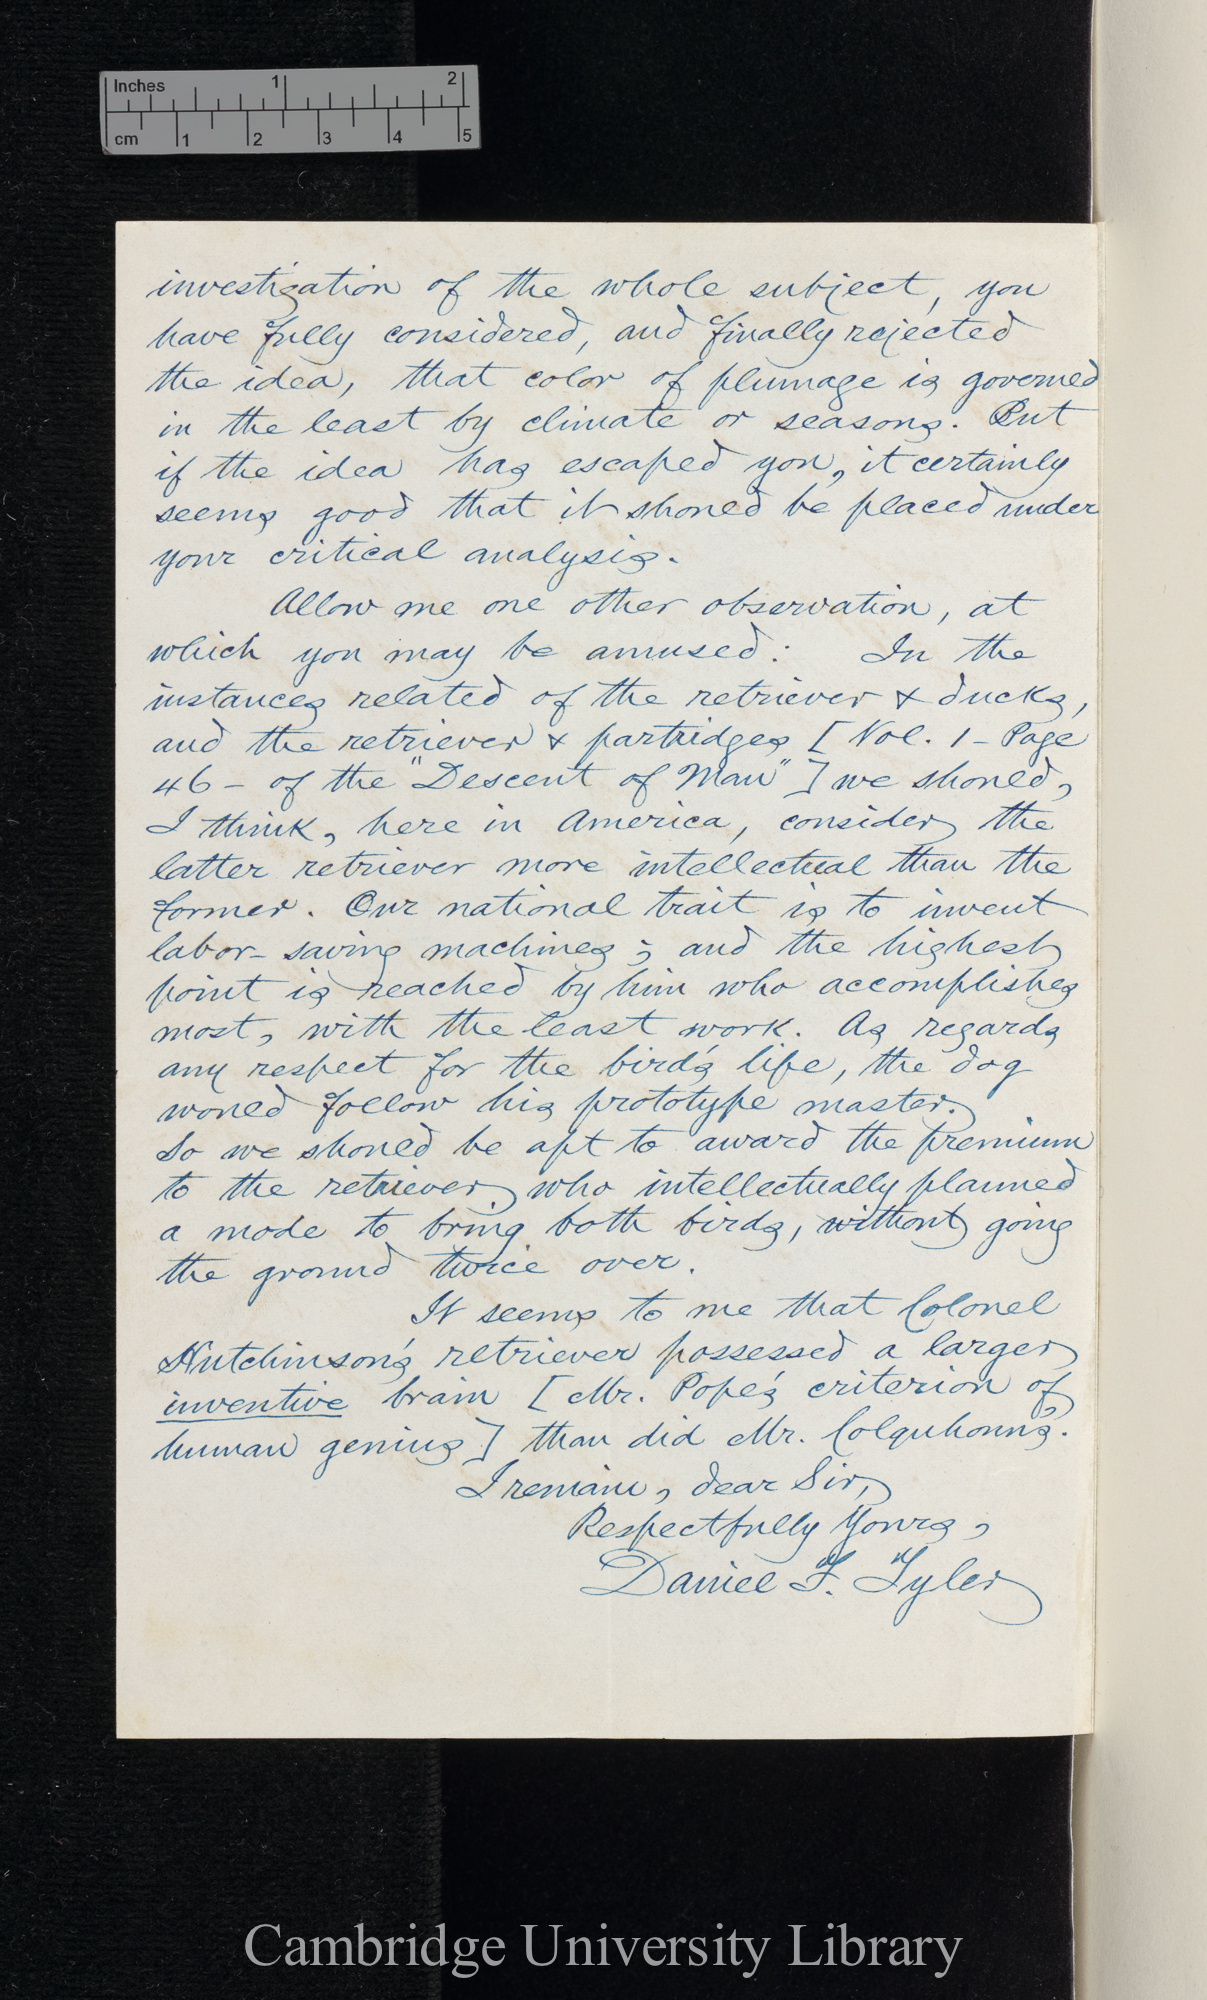 Inches 1 2
cm 1 2 3 4 5
investigation of the whole subject, you
have fully considered, and finally rejected
the idea, that color of plumage is governed
in the least by climate or seasons. But
if the idea has escaped you, it certainly
seems good that it should be placed under
your critical analysis.
Allow me one other observation, at
which you may be amused: In the
instances related of the retriever & ducks,
and the retriever & partridges [Vol. 1 - Page
46 - of the "Descent of Man"] we should,
I think, here in America, consider the
latter retriever more intellectual than the
former. Our national trait is to invent
labor-saving machines; and the highest
point is reached by him who accomplishes
most, with the least work. As regards
any respect for the bird's life, the dog
would follow his prototype master.
So we should be apt to award the premium
to the retriever who intellectually planned
a mode to bring both birds, without going
the ground twice over.
It seems to me that Colonel
Hutchinson's retriever possessed a larger
inventive brain [Mr. Pope's criterion of
human genius] than did Mr. Colquhoun's.
I remain, dear Sir,
Respectfully Yours,
Daniel F. Tyler
Cambridge University Library